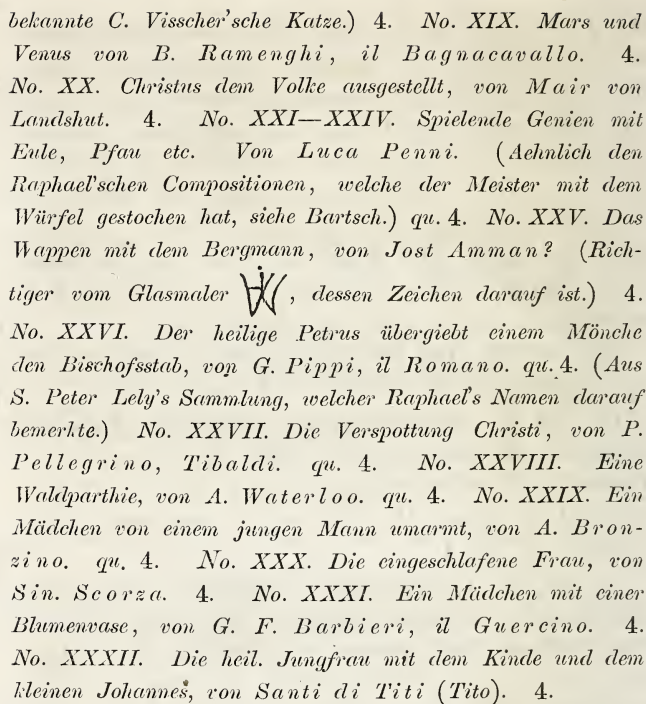 bekannte C. Visscher'sche Katze.) 4. No. XIX. Mars und
Venus von B. Ramenghi, il Bagnacavallo. 4.
No. XX. Christus dem Volke ausgestellt, von Mair von
Landshut. 4. No. XXI—XXIV. Spielende Genien mit
Eule, Pfau etc. Von Luca Penni. (Aehnlich den
Raphael'schen Compositionen, welche der Meister mit dem
Würfel gestochen hat, siehe Bartsch.) qu. 4. No. XXV. Das
Wappen mit dem Bergmann, von Jost Amman? (Rich-
tiger vom Glasmaler , dessen Zeichen darauf ist.) 4.
No. XXVI. Der heilige Petrus übergiebt einem Mönche
den Bischofsstab, von G. Pippi, il Romano. qu. 4. (Aus
S. Peter Lely's Sammlung, welcher Raphael's Namen darauf
bemerkte.) No. XXVII. Die Verspottung Christi, von P.
Pellegrino, Tibaldi. qu. 4. No. XXVIII. Eine
Waldparthie, von A. Waterloo. qu. 4. No. XXIX. Ein
Mädchen von einem jungen Mann umarmt, von A. Bron-
zino. qu. 4. No. XXX. Die eingeschlafene Frau, von
Sin. Scorza. 4. No. XXXI. Ein Mädchen mit einer
Blumenvase, von G. F. Barbieri, il Guercino. 4.
No. XXXII. Die heil. Jungfrau mit dem Kinde und dem
kleinen Johannes, von Santi di Titi (Tito). 4.